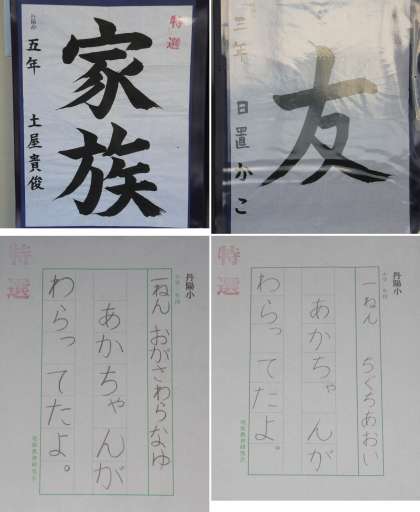 特選
家族
丹陽小
五年 土屋貴俊
友
三年 日置かこ
特選
丹陽小
一ねん おがさわらなゆ
あかちゃんが
わらってたよ。
特選
丹陽小
一ねん ちぐちあおい
あかちゃんが
わらってたよ。